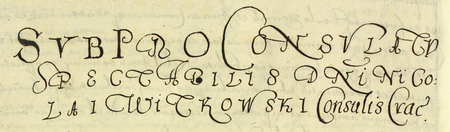 SVB PROCONSVLATV
SPECTABILIS DNI NICO:
LAI WITKOWSKI Consulis Crac.